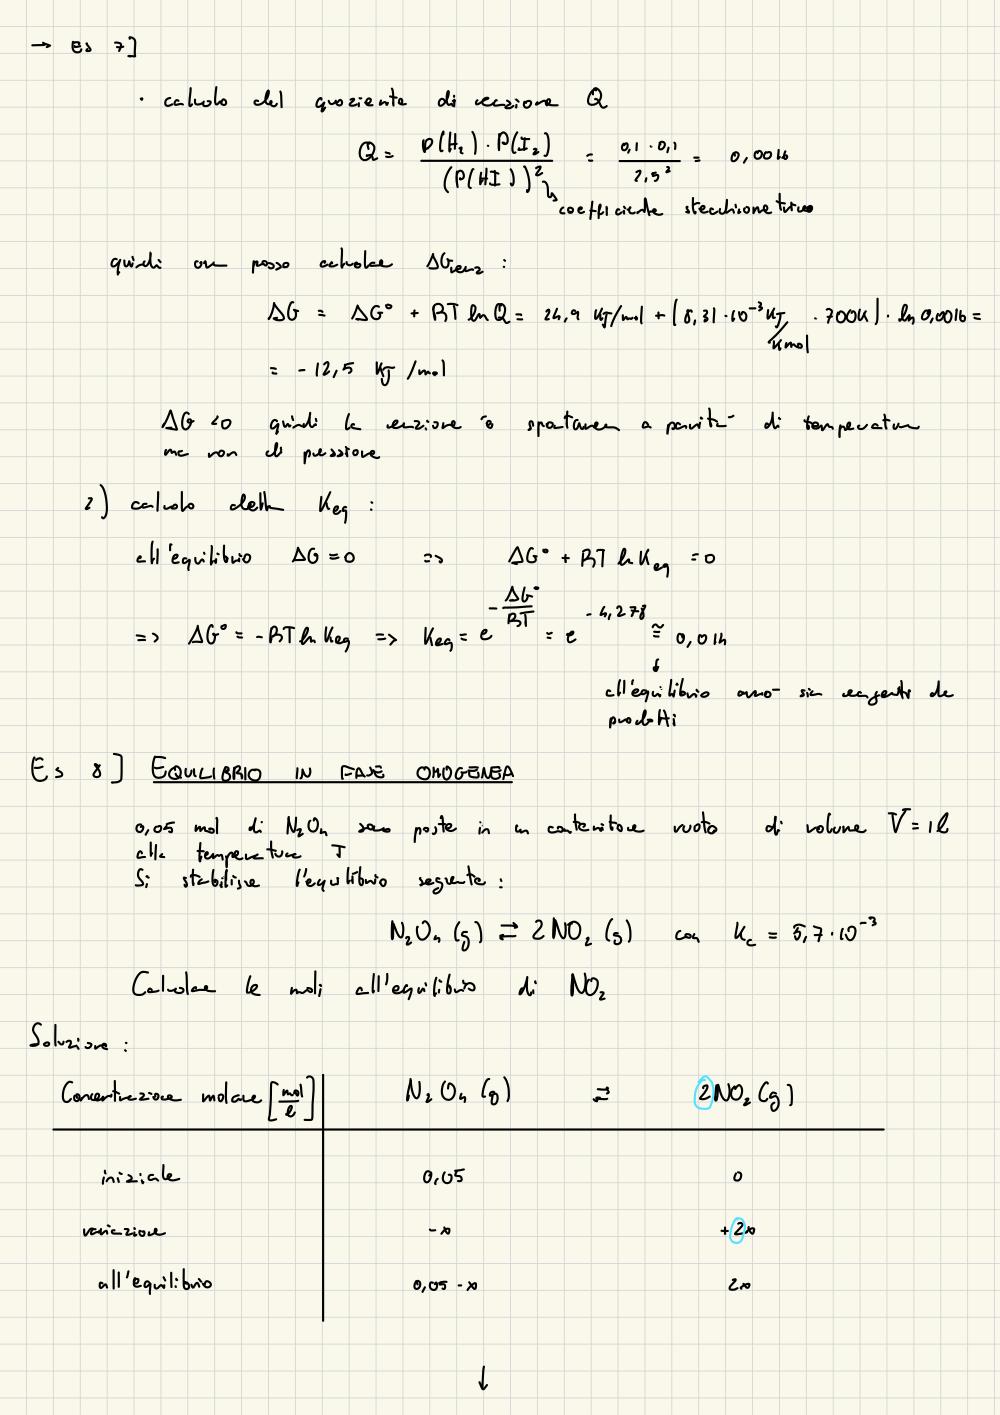 → Es 7]
· calcolo del quoziente di reazione Q
Q = P(H₂) · P(I₂) / (P(HI))² = 0,1 · 0,1 / 2,5² = 0,0016
↳ coefficiente stechiometrico
quindi ora posso calcolare ΔG reaz :
ΔG = ΔG° + RT ln Q = 24,9 KJ/mol + (8,31 · 10⁻³ KJ/Kmol · 700K) · ln 0,0016 =
= -12,5 KJ/mol
ΔG <0 quindi la reazione è spontanea a parità di temperatura
ma non di pressione
2) calcolo della Keq :
all'equilibrio ΔG = 0 => ΔG° + RT ln Keq = 0
=> ΔG° = -RT ln Keq => Keq = e^(-ΔG°/RT) = e^(-4,278) ≅ 0,014
↓
all'equilibrio avrò sia reagenti che
prodotti
Es 8] EQUILIBRIO IN FASE OMOGENEA
0,05 mol di N₂O₄ sono poste in un contenitore vuoto di volume V = 1 l
alla temperatura T
Si stabilisce l'equilibrio seguente :
N₂O₄ (g) ⇄ 2NO₂ (g) con Kc = 5,7 · 10⁻³
Calcolare le moli all'equilibrio di NO₂
Soluzione :
Concentrazione molare [mol/l] N₂O₄ (g) ⇄ 2NO₂ (g)
iniziale 0,05 0
variazione -x +2x
all'equilibrio 0,05 -x 2x
↓